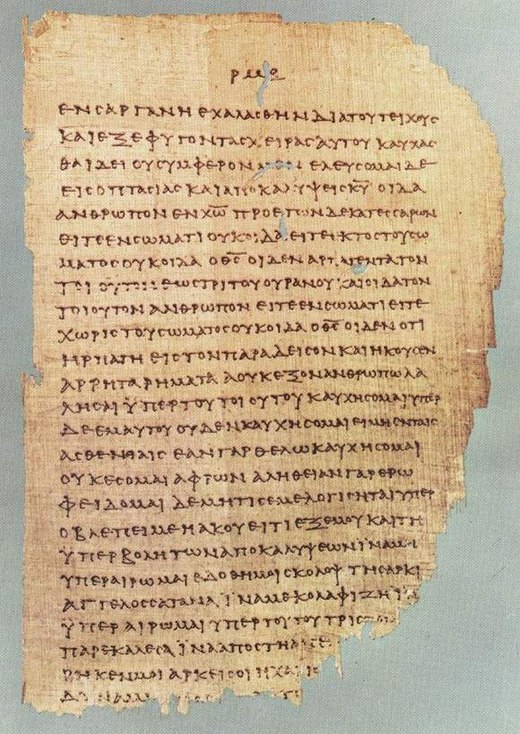 ΕΝ ΣΑΡΓΑΝΗ ΕΧΑΛΑΣΘΗΝ ΔΙΑ ΤΟΥ ΤΕΙΧΟΥΣ
ΚΑΙ ΕΞΕΦΥΓΟΝ ΤΑΣ ΧΕΙΡΑΣ ΑΥΤΟΥ ΚΑΥΧΑΣ
ΘΑΙ ΔΕΙ ΟΥ ΣΥΜΦΕΡΟΝ ΕΛΕΥΣΟΜΑΙ ΔΕ
ΕΙΣ ΟΠΤΑΣΙΑΣ ΚΑΙ ΑΠΟΚΑΛΥΨΕΙΣ Κ̅Υ̅ ΟΙΔΑ
ΑΝΘΡΩΠΟΝ ΕΝ Χ̅Ω̅ ΠΡΟ ΕΤΩΝ ΔΕΚΑΤΕΣΣΑΡΩΝ
ΕΙΤΕ ΕΝ ΣΩΜΑΤΙ ΟΥΚ ΟΙΔΑ ΕΙΤΕ ΕΚΤΟΣ ΤΟΥ ΣΩ
ΜΑΤΟΣ ΟΥΚ ΟΙΔΑ Ο Θ̅Σ̅ ΟΙΔΕΝ ΑΡΠΑΓΕΝΤΑ ΤΟΝ
ΤΟΙΟΥΤΟΝ ΕΩΣ ΤΡΙΤΟΥ ΟΥΡΑΝΟΥ ΚΑΙ ΟΙΔΑ ΤΟΝ
ΤΟΙΟΥΤΟΝ ΑΝΘΡΩΠΟΝ ΕΙΤΕ ΕΝ ΣΩΜΑΤΙ ΕΙΤΕ
ΧΩΡΙΣ ΤΟΥ ΣΩΜΑΤΟΣ ΟΥΚ ΟΙΔΑ Ο Θ̅Σ̅ ΟΙΔΕΝ ΟΤΙ
ΗΡΠΑΓΗ ΕΙΣ ΤΟΝ ΠΑΡΑΔΕΙΣΟΝ ΚΑΙ ΗΚΟΥΣΕΝ
ΑΡΡΗΤΑ ΡΗΜΑΤΑ Α ΟΥΚ ΕΞΟΝ ΑΝΘΡΩΠΩ ΛΑ
ΛΗΣΑΙ ΫΠΕΡ ΤΟΥ ΤΟΙΟΥΤΟΥ ΚΑΥΧΗΣΟΜΑΙ ΥΠΕΡ
ΔΕ ΕΜΑΥΤΟΥ ΟΥΔΕΝ ΚΑΥΧΗΣΟΜΑΙ ΕΙ ΜΗ ΕΝ ΤΑΙΣ
ΑΣΘΕΝΕΙΑΙΣ ΕΑΝ ΓΑΡ ΘΕΛΩ ΚΑΥΧΗΣΟΜΑΙ
ΟΥΚ ΕΣΟΜΑΙ ΑΦΡΩΝ ΑΛΗΘΕΙΑΝ ΓΑΡ ΕΡΩ
ΦΕΙΔΟΜΑΙ ΔΕ ΜΗ ΤΙΣ ΕΜΕ ΛΟΓΙΣΗΤΑΙ ΥΠΕΡ
Ο ΒΛΕΠΕΙ ΜΕ Η ΑΚΟΥΕΙ ΤΙ ΕΞ ΕΜΟΥ ΚΑΙ ΤΗ
ΫΠΕΡΒΟΛΗ ΤΩΝ ΑΠΟΚΑΛΥΨΕΩΝ ΪΝΑ ΜΗ
ΥΠΕΡΑΙΡΩΜΑΙ ΕΔΟΘΗ ΜΟΙ ΣΚΟΛΟΨ ΤΗ ΣΑΡΚΙ
ΑΓΓΕΛΟΣ ΣΑΤΑΝΑ ΪΝΑ ΜΕ ΚΟΛΑΦΙΖΗ ΪΝΑ
ΫΠΕΡΑΙΡΩΜΑΙ ΥΠΕΡ ΤΟΥΤΟΥ ΤΡΙΣ
ΠΑΡΕΚΑΛΕΣΑ ΪΝΑ ΑΠΟΣΤΗ
ΚΕΝ ΜΟΙ ΑΡΚΕΙ ΣΟΙ Η ΧΑΡΙΣ